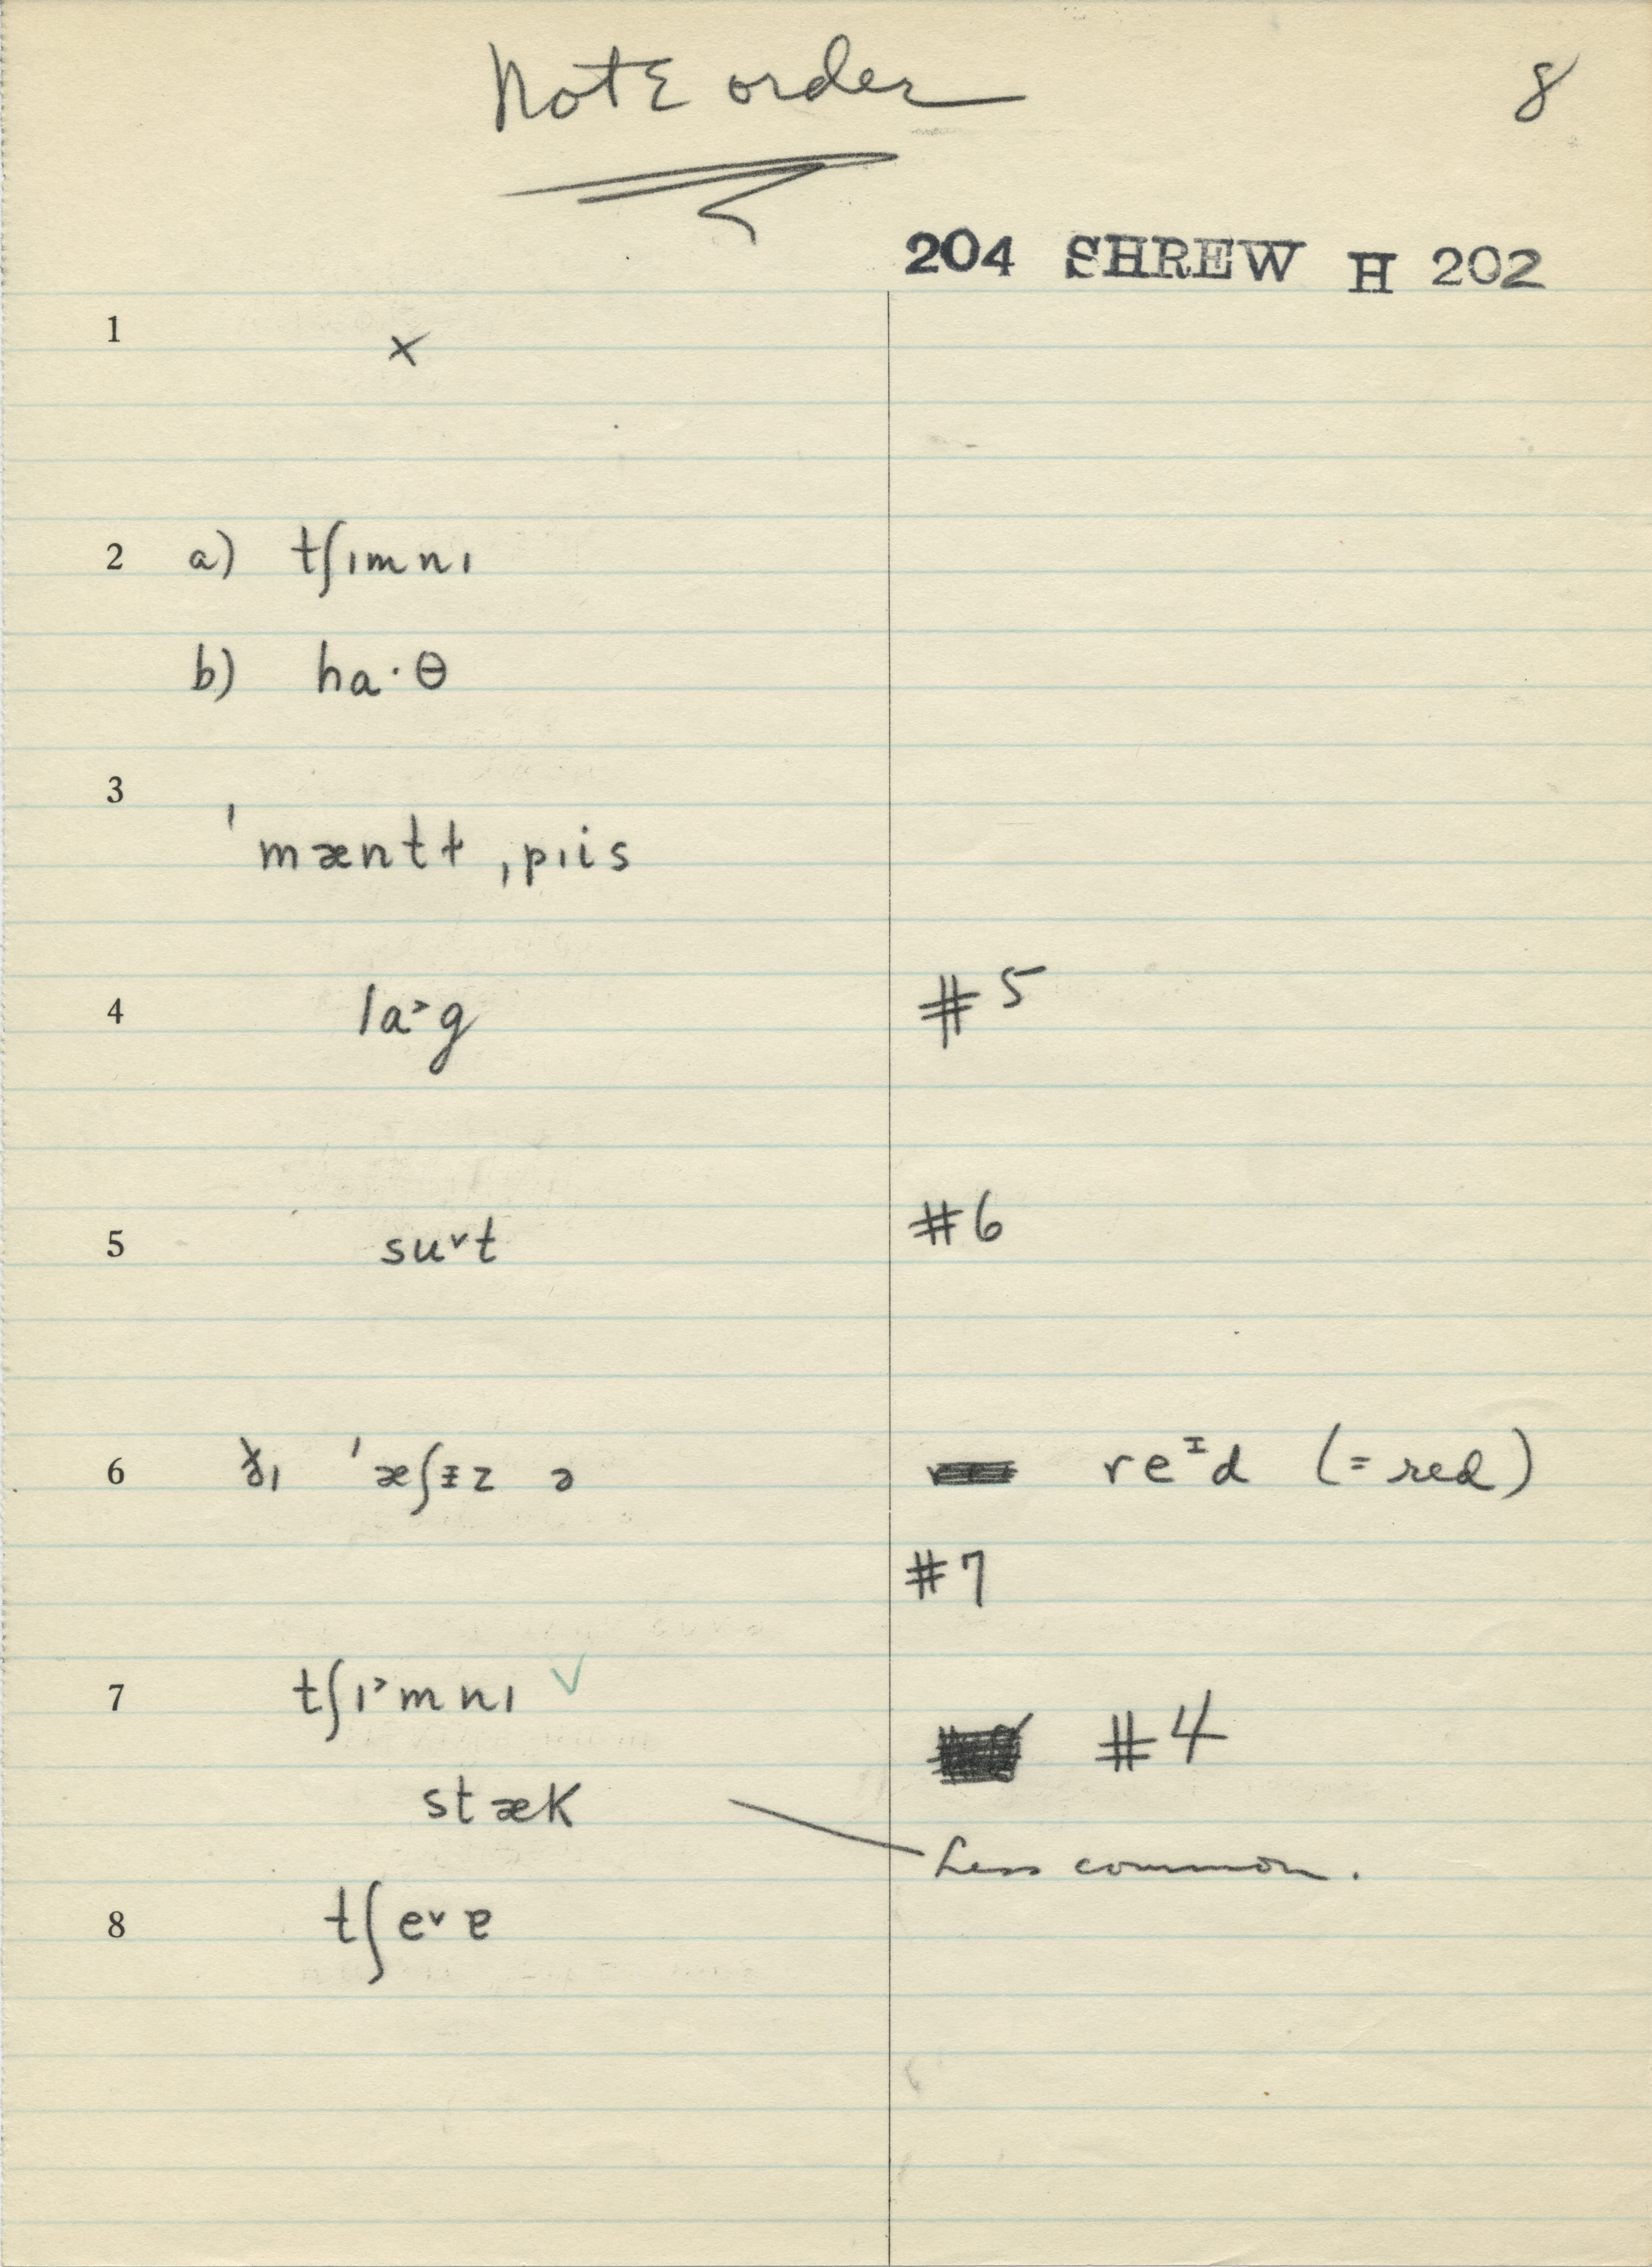 Note order
8
204 SHREW H 202
1 ×
2 a) tʃɪmnɪ
b) ha·θ
3 ˈmæntɫ ˌpɪis
4 la˃g #5
5 su˅t #6
6 ɪ ˈæʃɪz ə reᴵd (= red)
#7
7 tʃɪ˃mnɪ ✓
#4
stæk
Less common.
8 tʃe˅ɐ